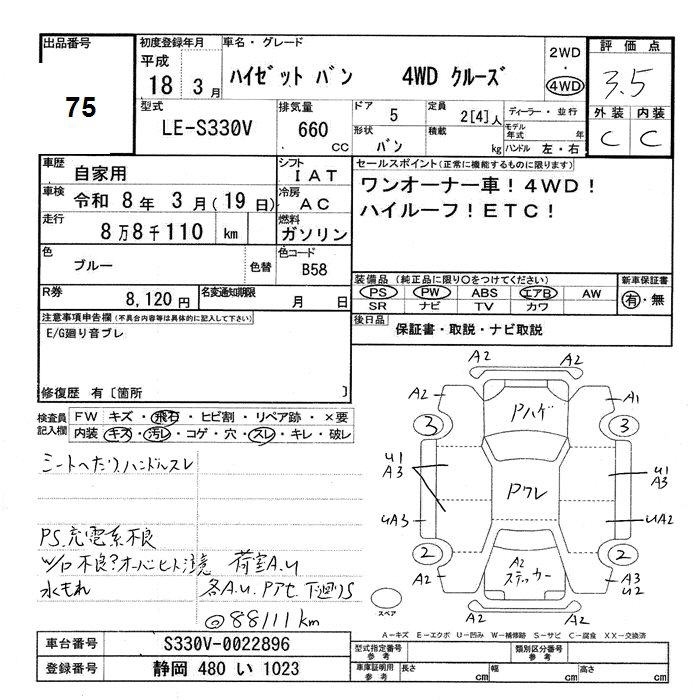 出品番号
75
初度登録年月
平成
18 3月
車名・グレード
ハイゼット バン 4WD クルーズ
2WD
・
4WD
評価点
3.5
外装 内装
C C
型式
LE-S330V
排気量
660
CC
ドア
5
定員
2[4]人
ディーラー・並行
形状
バン
積載
kg
モデル年式
年
ハンドル 左・右
車歴
自家用
シフト
IAT
車検
令和 8年 3月(19日)
冷房
AC
走行
8万8千110 km
燃料
ガソリン
色
ブルー
色替
色コード
B58
R券
8,120円
名変通知期限
月 日
セールスポイント(正常に機能するものに限ります)
ワンオーナー車!4WD!
ハイルーフ!ETC!
装備品 (純正品に限り〇をつけてください)
PS PW ABS エアB AW
SR ナビ TV カワ
新車保証書
有・無
後日品
保証書・取説・ナビ取説
注意事項申告欄(不具合内容等は具体的に記入して下さい)
E/G廻り音ブレ
修復歴 有[箇所 ]
検査員記入欄
FW キズ・飛石・ヒビ割・リペア跡・×要
内装 キズ・汚レ・コゲ・穴・スレ・キレ・破レ
シートへたりハンドルスレ
PS.充電系不良
W/P不良?オーバーヒート注意 荷室A.U
水もれ 各A.U.Pアセ 下廻りS
@88111km
A2
A2
A2
A1
Pハゲ
3
3
U1
A3
U1
A3
Pクレ
UA3
UA2
2
2
A2
ステッカー
A2
A3
U2
A2
A2
スペア
A－キズ E－エクボ U－凹み W－補修跡 S－サビ C－腐食 XX－交換済
車台番号
S330V-0022896
登録番号
静岡 480 い 1023
型式指定番号
参考
類別区分番号
参考
車庫証明用
参考
長さ
cm
幅
cm
高さ
cm